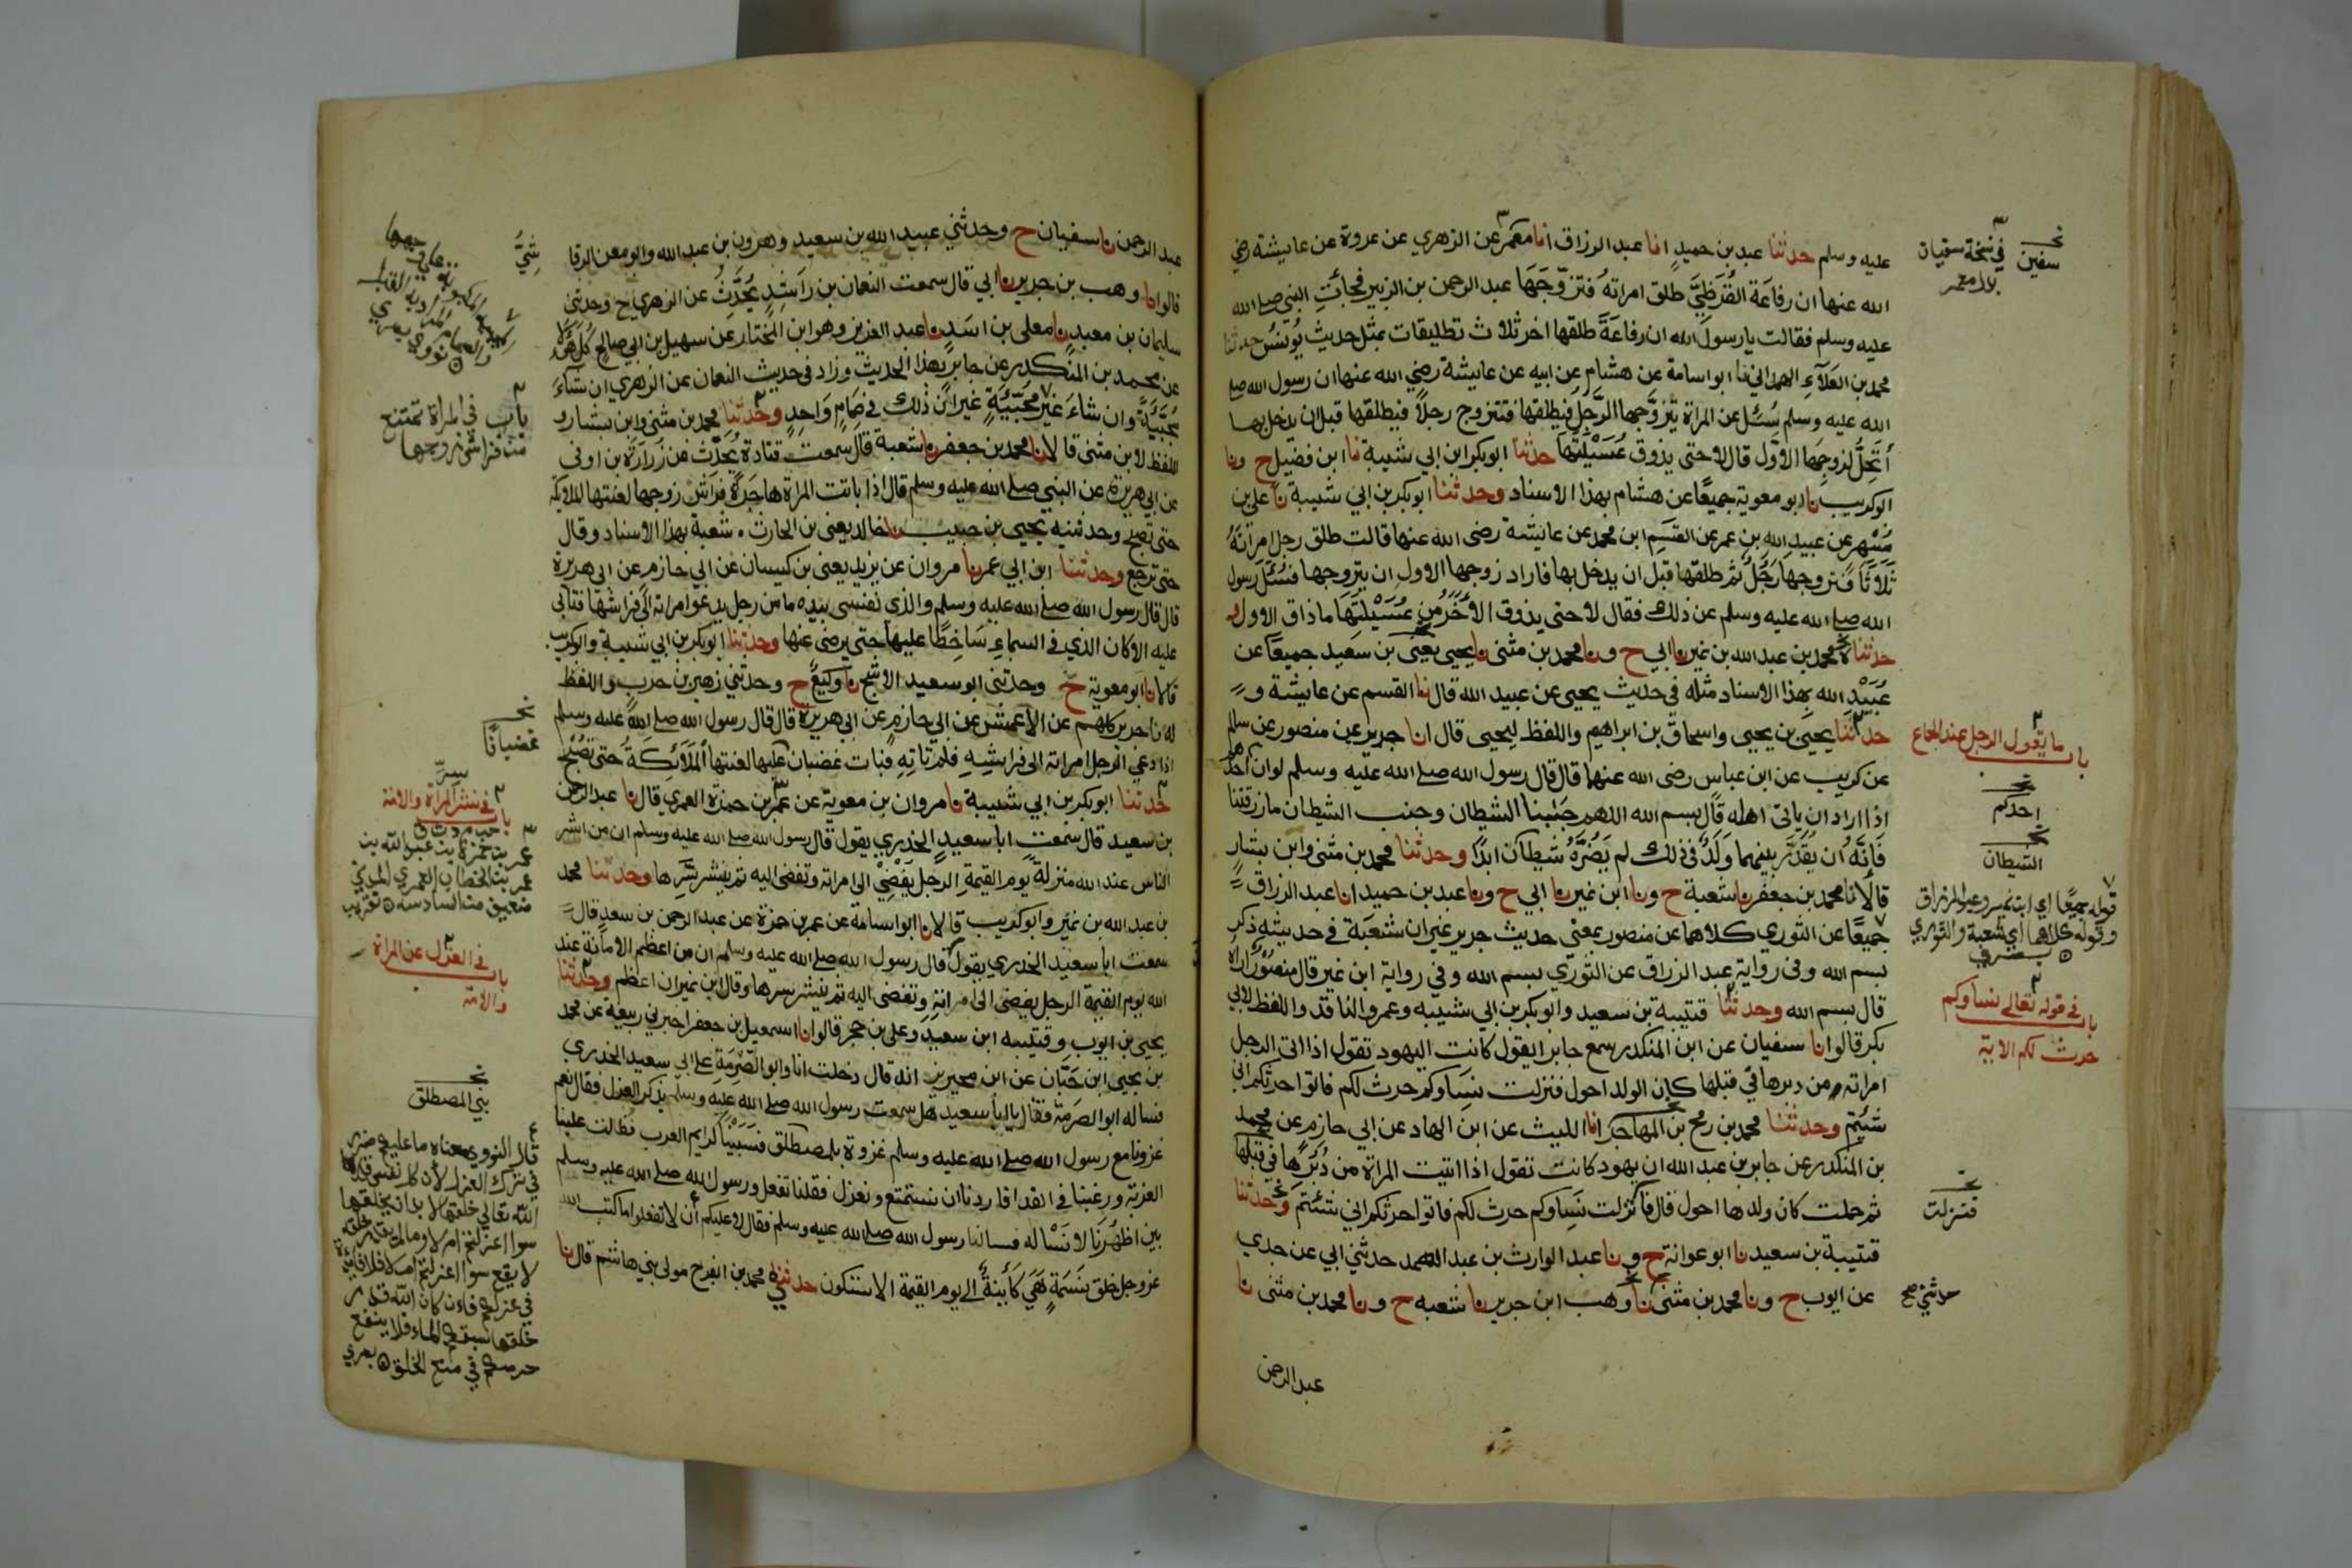 عليه وسلم حدثنا عبد بن حميد انا عبد الرزاق انا معمر عن الزهري عن عروة عن عايشة رضي
الله عنها ان رفاعة القرظي طلق امراته فتزوجها عبد الرحمن بن الزبير فجائت النبي صلى الله
عليه وسلم فقالت يا رسول الله ان رفاعة طلقها اخر ثلاث تطليقات بمثل حديث يونس حدثنا
محمد بن العلاء الهمداني نا ابو اسامة عن هشام عن ابيه عن عايشة رضي الله عنها ان رسول الله صلى
الله عليه وسلم سئل عن المراة يتزوجها الرجل فيطلقها فتتزوج رجلا فيطلقها قبل ان يدخل بها
أتحل لزوجها الاول قال لا حتى يذوق عسيلتها حدثنا ابو بكر ابن ابي شيبة نا ابن فضيل ح ونا
ابو كريب نا ابو معوية جميعا عن هشام بهذا الاسناد وحدثنا ابو بكر بن ابي شيبة نا علي بن
مسهر عن عبيد الله بن عمر عن القسم ابن محمد عن عايشة رضى الله عنها قالت طلق رجل امراته
ثلاثا فتزوجها رجل ثم طلقها قبل ان يدخل بها فاراد زوجها الاول ان يتزوجها فسئل رسول
الله صلى الله عليه وسلم عن ذلك فقال لا حتى يذوق الأخر من عسيلتها ما ذاق الاول و
حدثناه محمد بن عبد الله بن نمير نا ابي ح ونا محمد بن مثنى نا يحيى يعنى بن سعيد جميعا عن
عبيد الله بهذا الاسناد مثله في حديث يحيى عن عبيد الله قال نا القسم عن عايشة و
حدثنا يحيى بن يحيى واسحاق بن ابراهيم واللفظ ليحيى قال انا جرير عن منصور عن سالم
عن كريب عن ابن عباس رضى الله عنهما قال قال رسول الله صلى الله عليه وسلم لو ان احدهم
اذا اراد ان ياتى اهله قال بسم الله اللهم جنبنا الشيطان وجنب الشيطان ما رزقتنا
فانه أن يقدر بينهما ولد في ذلك لم يضره شيطان ابدا وحدثنا محمد بن مثنى وابن بشار
قالا نا محمد بن جعفر نا شعبة ح ونا ابن نمير نا ابي ح ونا عبد بن حميد انا عبد الرزاق
جميعا عن الثوري كلاهما عن منصور بمعنى حديث جرير غير ان شعبة في حديثه ذكر
بسم الله وفى رواية عبد الرزاق عن الثوري بسم الله وفي رواية ابن نمير قال منصور اراه
قال بسم الله وحدثنا قتيبة بن سعيد وابو بكر بن ابي شيبه وعمرو الناقد واللفظ لابي
بكر قالوا نا سفيان عن ابن المنكدر سمع جابرا يقول كانت اليهود تقول اذا اتى الرجل
امراته من دبرها في قبلها كان الولد احول فنزلت نساوكم حرث لكم فاتوا حرثكم انى
شئتم وحدثنا محمد بن رمح بن المهاجر انا الليث عن ابن الهاد عن ابي حازم عن محمد
بن المنكدر عن جابر بن عبد الله ان يهود كانت تقول اذا اتيت المراة من دبرها في قبلها
ثم حملت كان ولدها احول قال فانزلت نساوكم حرث لكم فاتوا حرثكم انى شئتم وحدثنا
قتيبة بن سعيد نا ابو عوانة ح ونا عبد الوارث بن عبد الصمد حدثني ابي عن جدي
عن ايوب ح ونا محمد بن مثنى نا وهب ابن جرير نا شعبه ح ونا محمد بن مثنى نا
عبد الرحمن
نخـ سفين
في نسخة سفيان بدل معمر
باب ما يقول الرجل عند الجماع
نخـ احدكم
نخـ الشيطان
قوله جميعا اي ابن نمير وعبد الرزاق
وقوله كلاهما اي شعبة والثوري
باب في قوله تعالى نساوكم
حرث لكم الاية
نخـ فنزلت
حدثني صح
عبد الرحمن نا سفيان ح وحدثني عبيد الله بن سعيد وهرون بن عبد الله وابو معن الرقا
قالوا نا وهب بن جرير نا ابي قال سمعت النعمان بن راشد يحدث عن الزهري ح وحدثني
سليمان بن معبد نا معلى بن اسد نا عبد العزيز وهو ابن المختار عن سهيل بن ابي صالح كل هؤلاء
عن محمد بن المنكدر عن جابر بهذا الحديث وزاد في حديث النعمان عن الزهري ان شاء
مجبية وان شاء غير مجبية غير ان ذلك في صمام واحد وحدثنا محمد بن مثنى وابن بشار و
اللفظ لابن مثنى قالا نا محمد بن جعفر نا شعبة قال سمعت قتادة يحدث عن زرارة بن اوفى
عن ابي هريرة عن النبي صلى الله عليه وسلم قال اذا باتت المراة هاجرة فراش زوجها لعنتها الملايكة
حتى تصبح وحدثنيه يحيى بن حبيب نا خالد يعنى بن الحارث شعبة بهذا الاسناد وقال
حتى ترجع وحدثنا ابن ابي عمر نا مروان عن يزيد يعنى بن كيسان عن ابي حازم عن ابي هريرة
قال قال رسول الله صلى الله عليه وسلم والذي نفسى بيده ما من رجل يدعو امراته الى فراشها فتابى
عليه الا كان الذي في السماء ساخطا عليها حتى يرضى عنها وحدثنا ابو بكر بن ابي شيبة وابو كريب
قالا نا ابو معوية ح وحدثنى ابو سعيد الاشج نا وكيع ح وحدثني زهير بن حرب واللفظ
له نا جرير كلهم عن الأعمش عن ابي حازم عن ابي هريرة قال قال رسول الله صلى الله عليه وسلم
اذا دعي الرجل امراته الى فراشه فلم تاته فبات غضبان عليها لعنتها الملائكة حتى تصبح
حدثنا ابو بكر بن ابي شيبة نا مروان بن معوية عن عمر بن حمزة العمري قال نا عبد الرحمن
بن سعيد قال سمعت ابا سعيد الخدري يقول قال رسول الله صلى الله عليه وسلم ان من اشر
الناس عند الله منزلة يوم القيمة الرجل يفضي الى امراته وتفضى اليه ثم ينشر سرها وحدثنا محمد
بن عبد الله بن نمير وابو كريب قالا نا ابو اسامة عن عمر بن حمزة عن عبد الرحمن بن سعد قال
سمعت ابا سعيد الخدري يقول قال رسول الله صلى الله عليه وسلم ان من اعظم الامانة عند
الله يوم القيمة الرجل يفضى الى امراته وتفضى اليه ثم ينشر سرها وقال ابن نمير ان اعظم وحدثنا
يحيى بن ايوب وقتيبه ابن سعيد وعلى بن حجر قالوا نا اسمعيل بن جعفر اخبرني ربيعة عن محمد
بن يحيى ابن حبان عن ابن محيريز انه قال دخلت انا وابو الصرمة على ابي سعيد الخدري
فساله ابو الصرمة فقال يا ابا سعيد هل سمعت رسول الله صلى الله عليه وسلم يذكر العزل فقال نعم
غزونا مع رسول الله صلى الله عليه وسلم غزوة بلمصطلق فسبينا كرايم العرب فطالت علينا
العزبة ورغبنا في الفدا فاردنا ان نستمتع ونعزل فقلنا نفعل ورسول الله صلى الله عليه وسلم
بين اظهرنا لا نساله فسالنا رسول الله صلى الله عليه وسلم فقال لا عليكم أن لا تفعلوا ما كتب الله
عز وجل خلق نسمة هي كائنة الى يوم القيمة الا ستكون حدثني محمد بن الفرج مولى بني هاشم قال نا
باب في المراة تمتنع
من فراش زوجها
نخـ غضبانا
باب في نشر سر المراة والامة
عمر بن حمزة بن عبد الله بن
عمر بن الخطاب العمري المدني
ضعيف من السادسة تقريب
باب في العزل عن المراة
والامة
نخـ بني المصطلق
قال النووي معناه ما عليكم ضرر
في ترك العزل لأن كل نفس قدر
الله تعالى خلقها لا بد ان يخلقها
سوا اعزلتم ام لا وما لم يقدر خلقه
لا يقع سوا اعزلتم ام لا فلا فائدة
في عزلكم فان كان الله قدر
خلقها سبقكم الماء فلا ينفع
حرصكم في منع الخلق